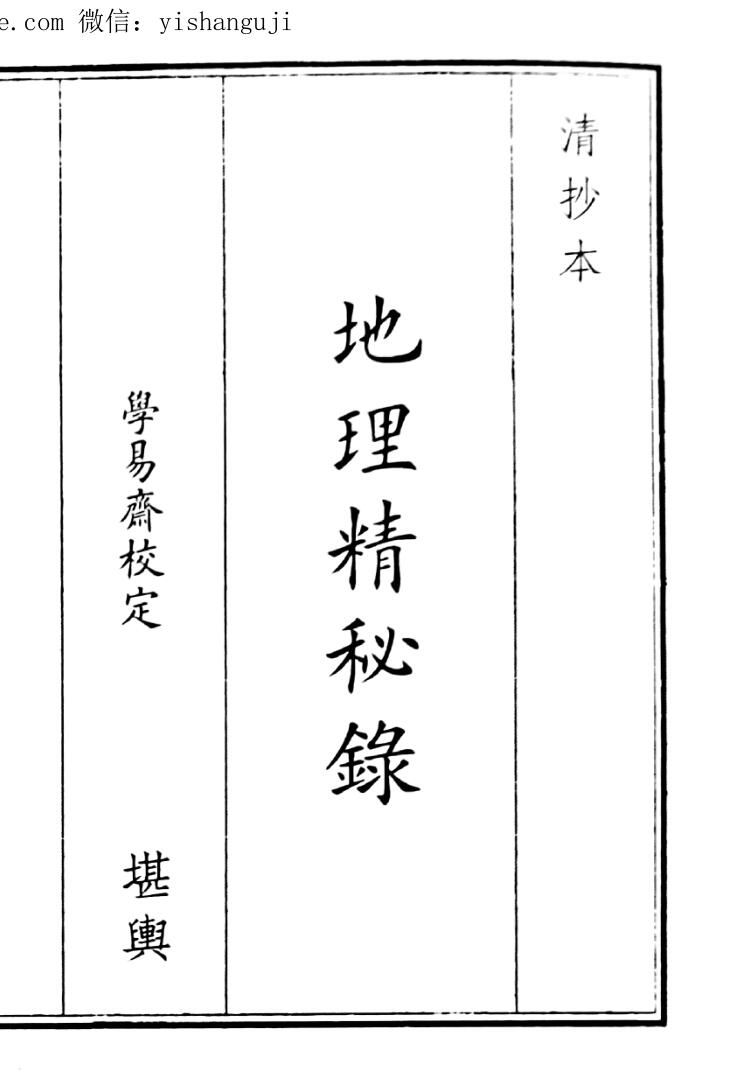 e.com 微信：yishanguji
清抄本
地理精秘錄
學易齋校定
堪輿